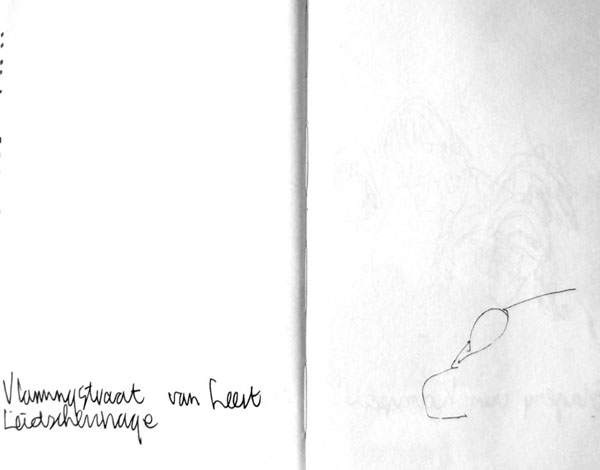 Vlamingstraat van Leest
Leidschenhage